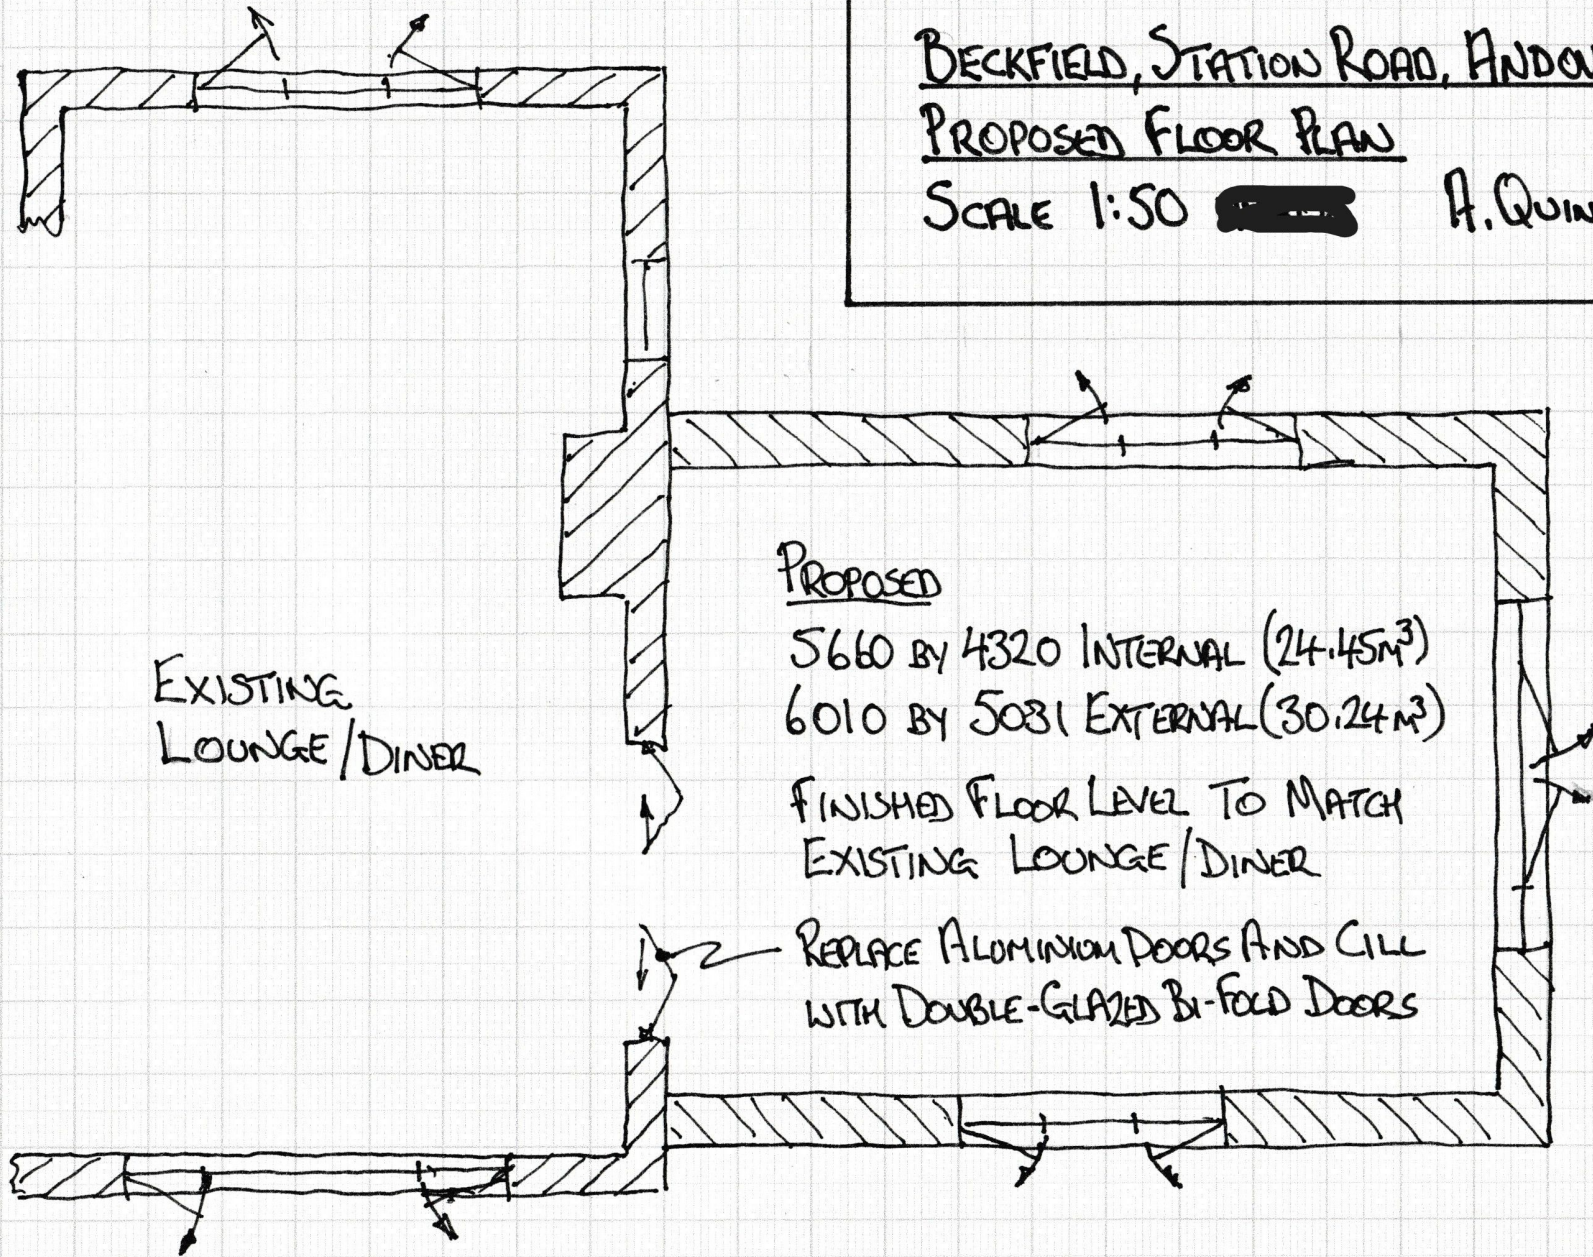 BECKFIELD, STATION ROAD,
PROPOSED FLOOR PLAN
SCALE 1:50 A. QUIN
PROPOSED
5660 BY 4320 INTERNAL (24.45M³)
6010 BY 5031 EXTERNAL (30.24M³)
FINISHED FLOOR LEVEL TO MATCH
EXISTING LOUNGE/DINER
REPLACE ALUMINIUM DOORS AND CILL
WITH DOUBLE-GLAZED BI-FOLD DOORS
EXISTING
LOUNGE/DINER